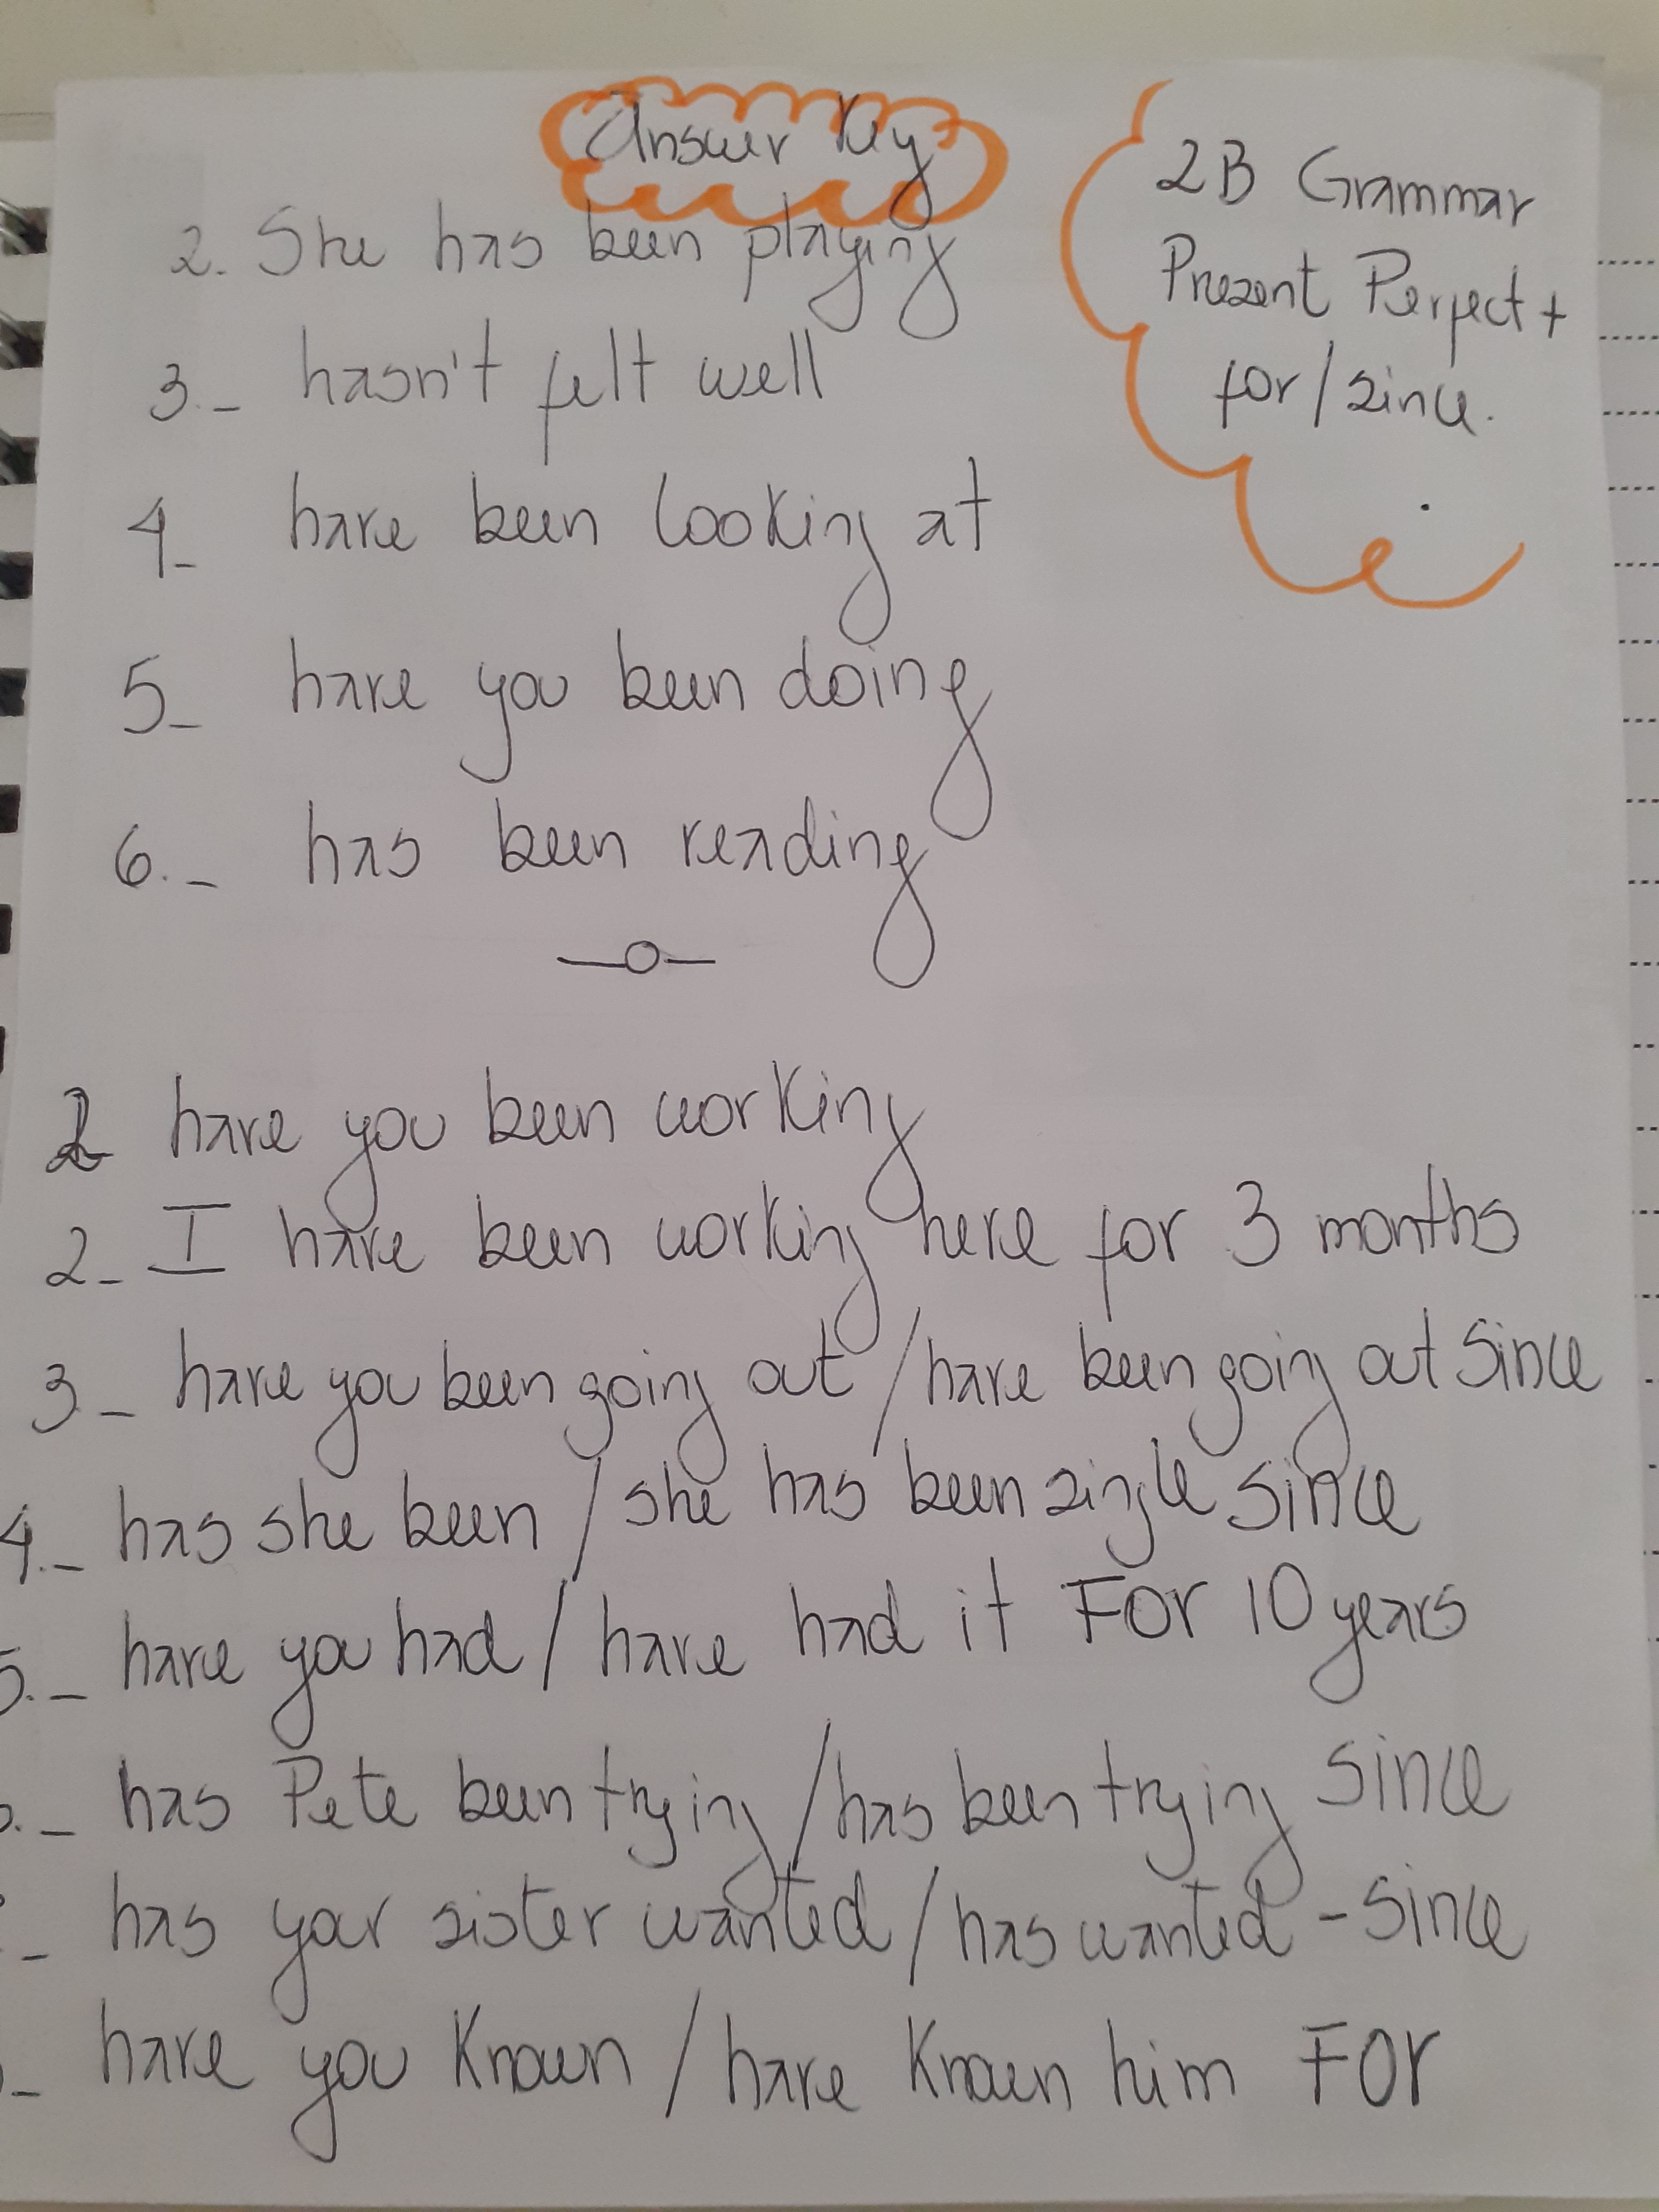 Answer Key
2B Grammar
Present Perfect +
for / since.
2. She has been playing
3._ hasn't felt well
4_ have been looking at
5_ have you been doing
6._ has been reading
—o—
2 have you been working
2_ I have been working here for 3 months
3_ have you been going out / have been going out since
4._ has she been / she has been single since
5._ have you had / have had it FOR 10 years
._ has Pete been trying / has been trying since
_ has your sister wanted / has wanted - since
_ have you known / have known him FOR